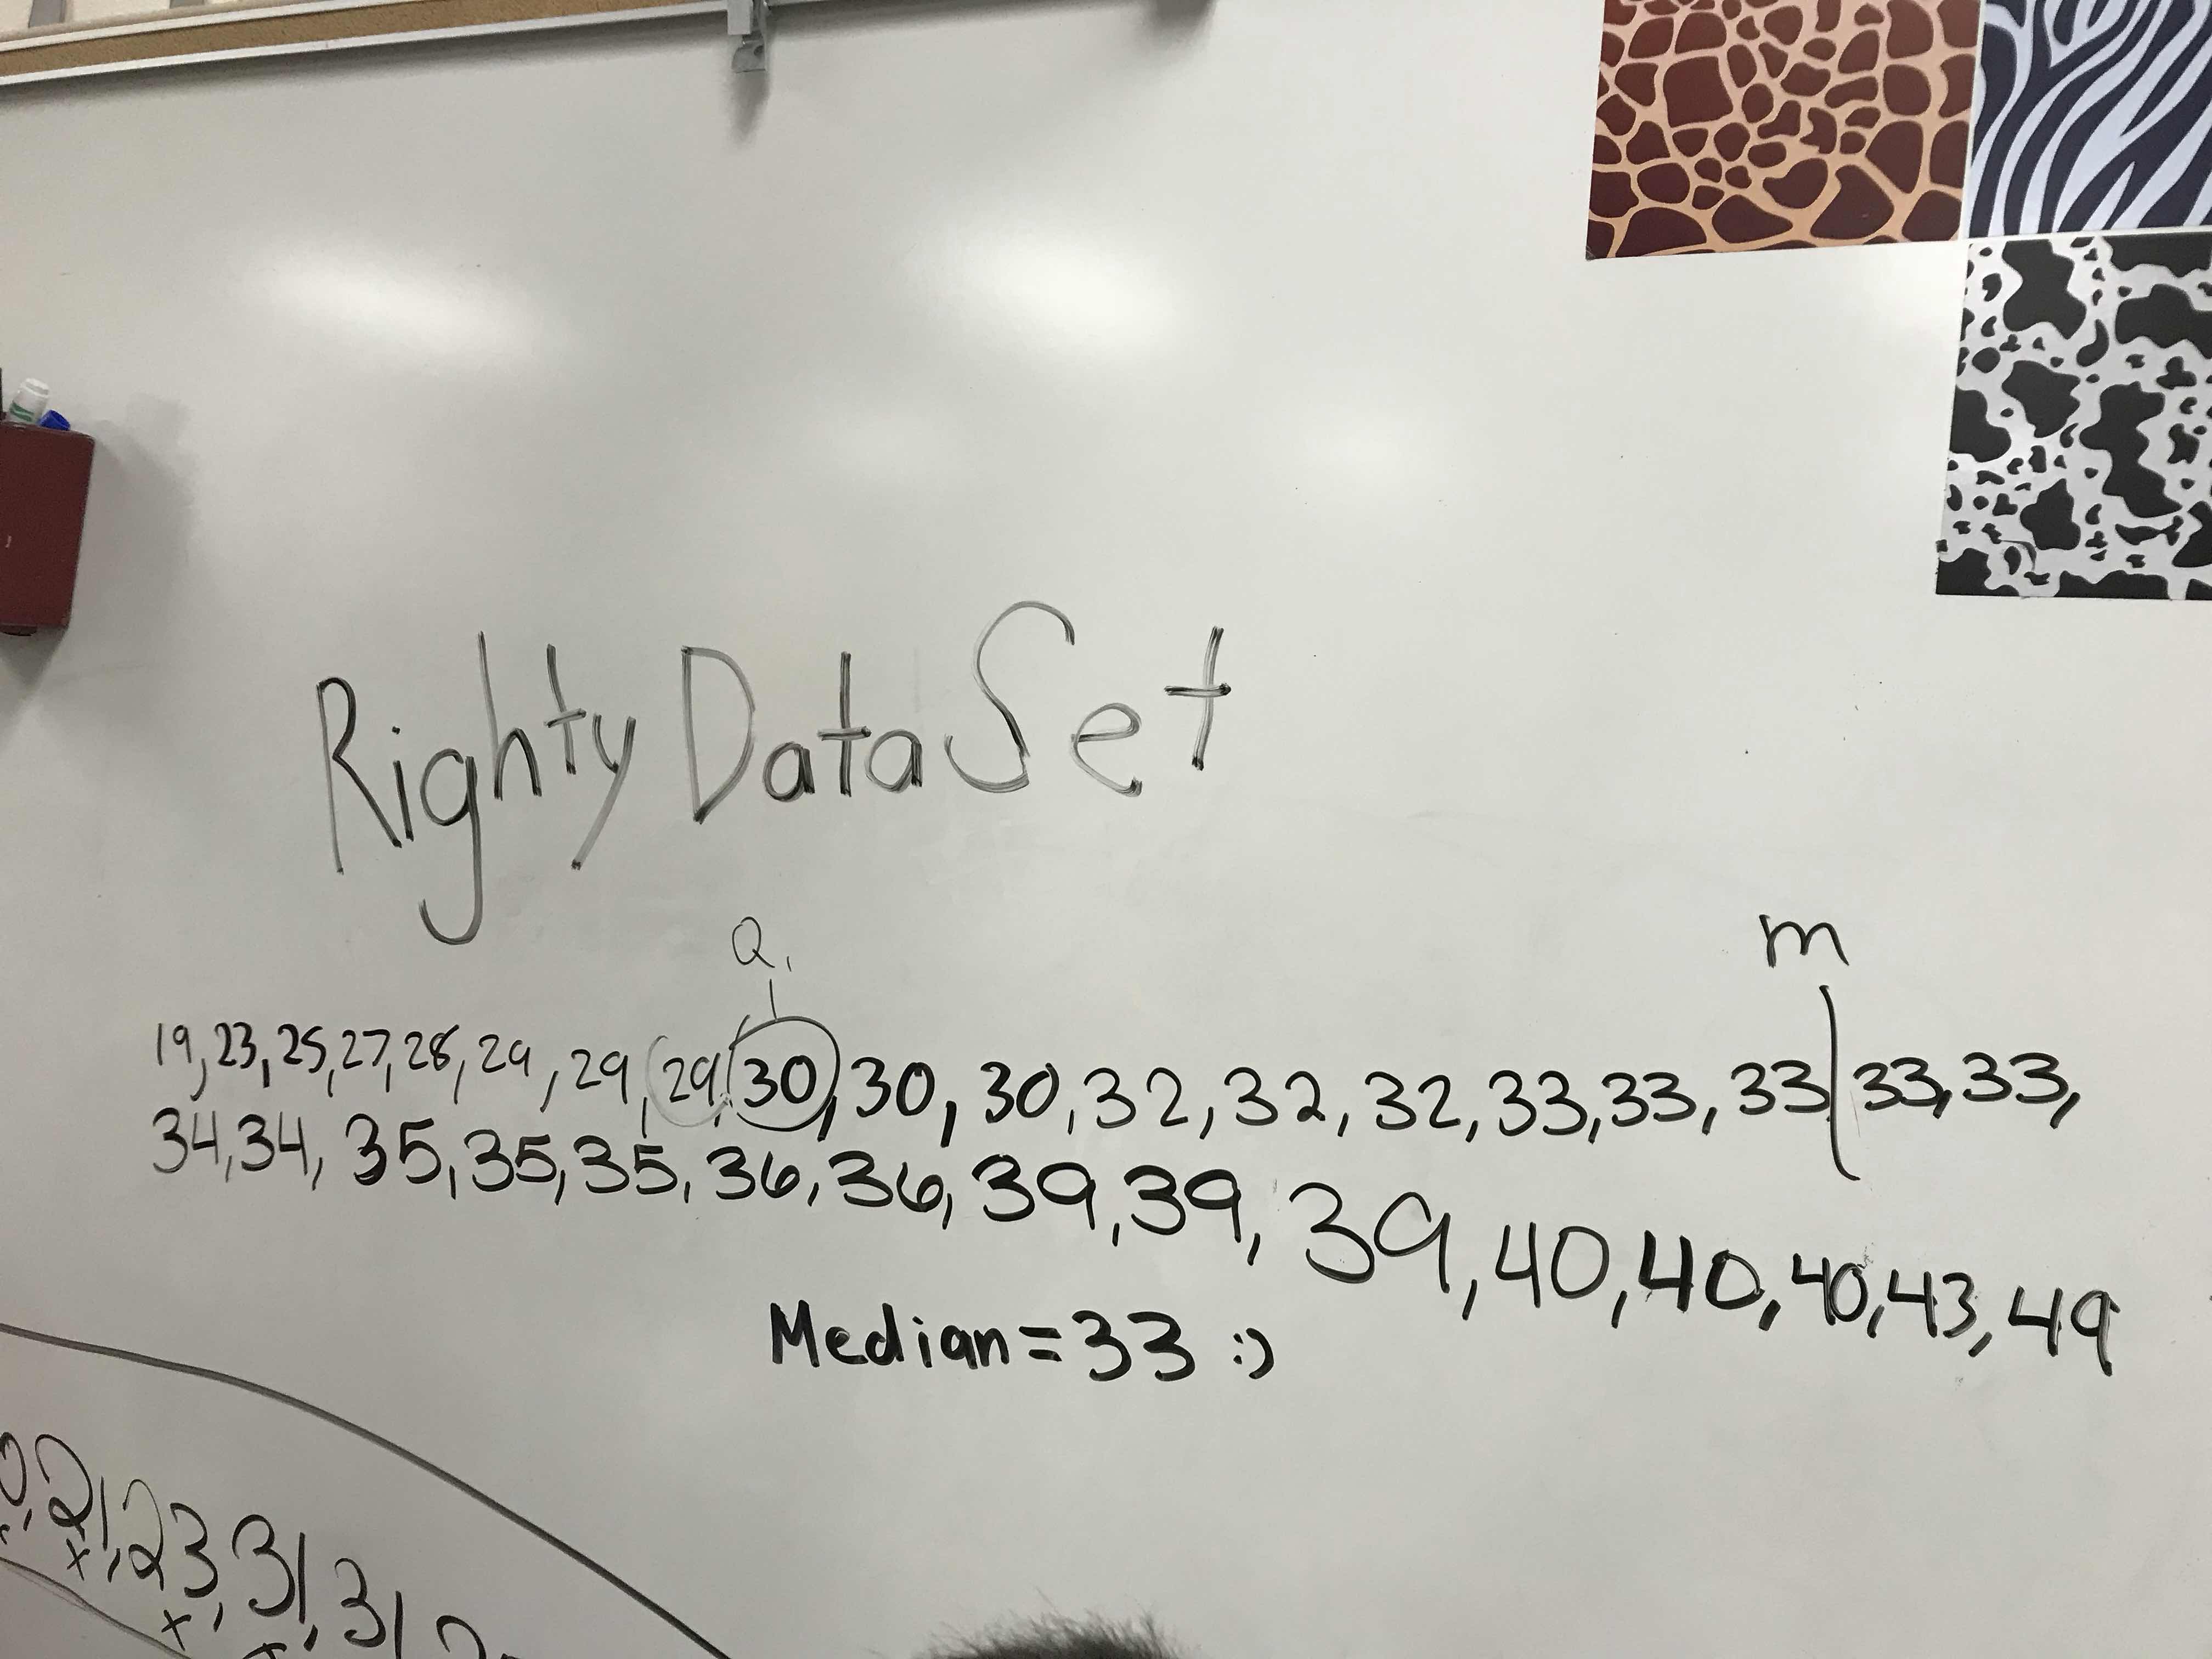 Righty Data Set
Q1
m
19, 23, 25, 27, 28, 29, 29, 29, 30, 30, 30, 32, 32, 32, 33, 33, 33 33, 33,
34, 34, 35, 35, 35, 36, 36, 39, 39, 39, 40, 40, 40, 43, 49
Median = 33 :)
21, 23, 31, 31